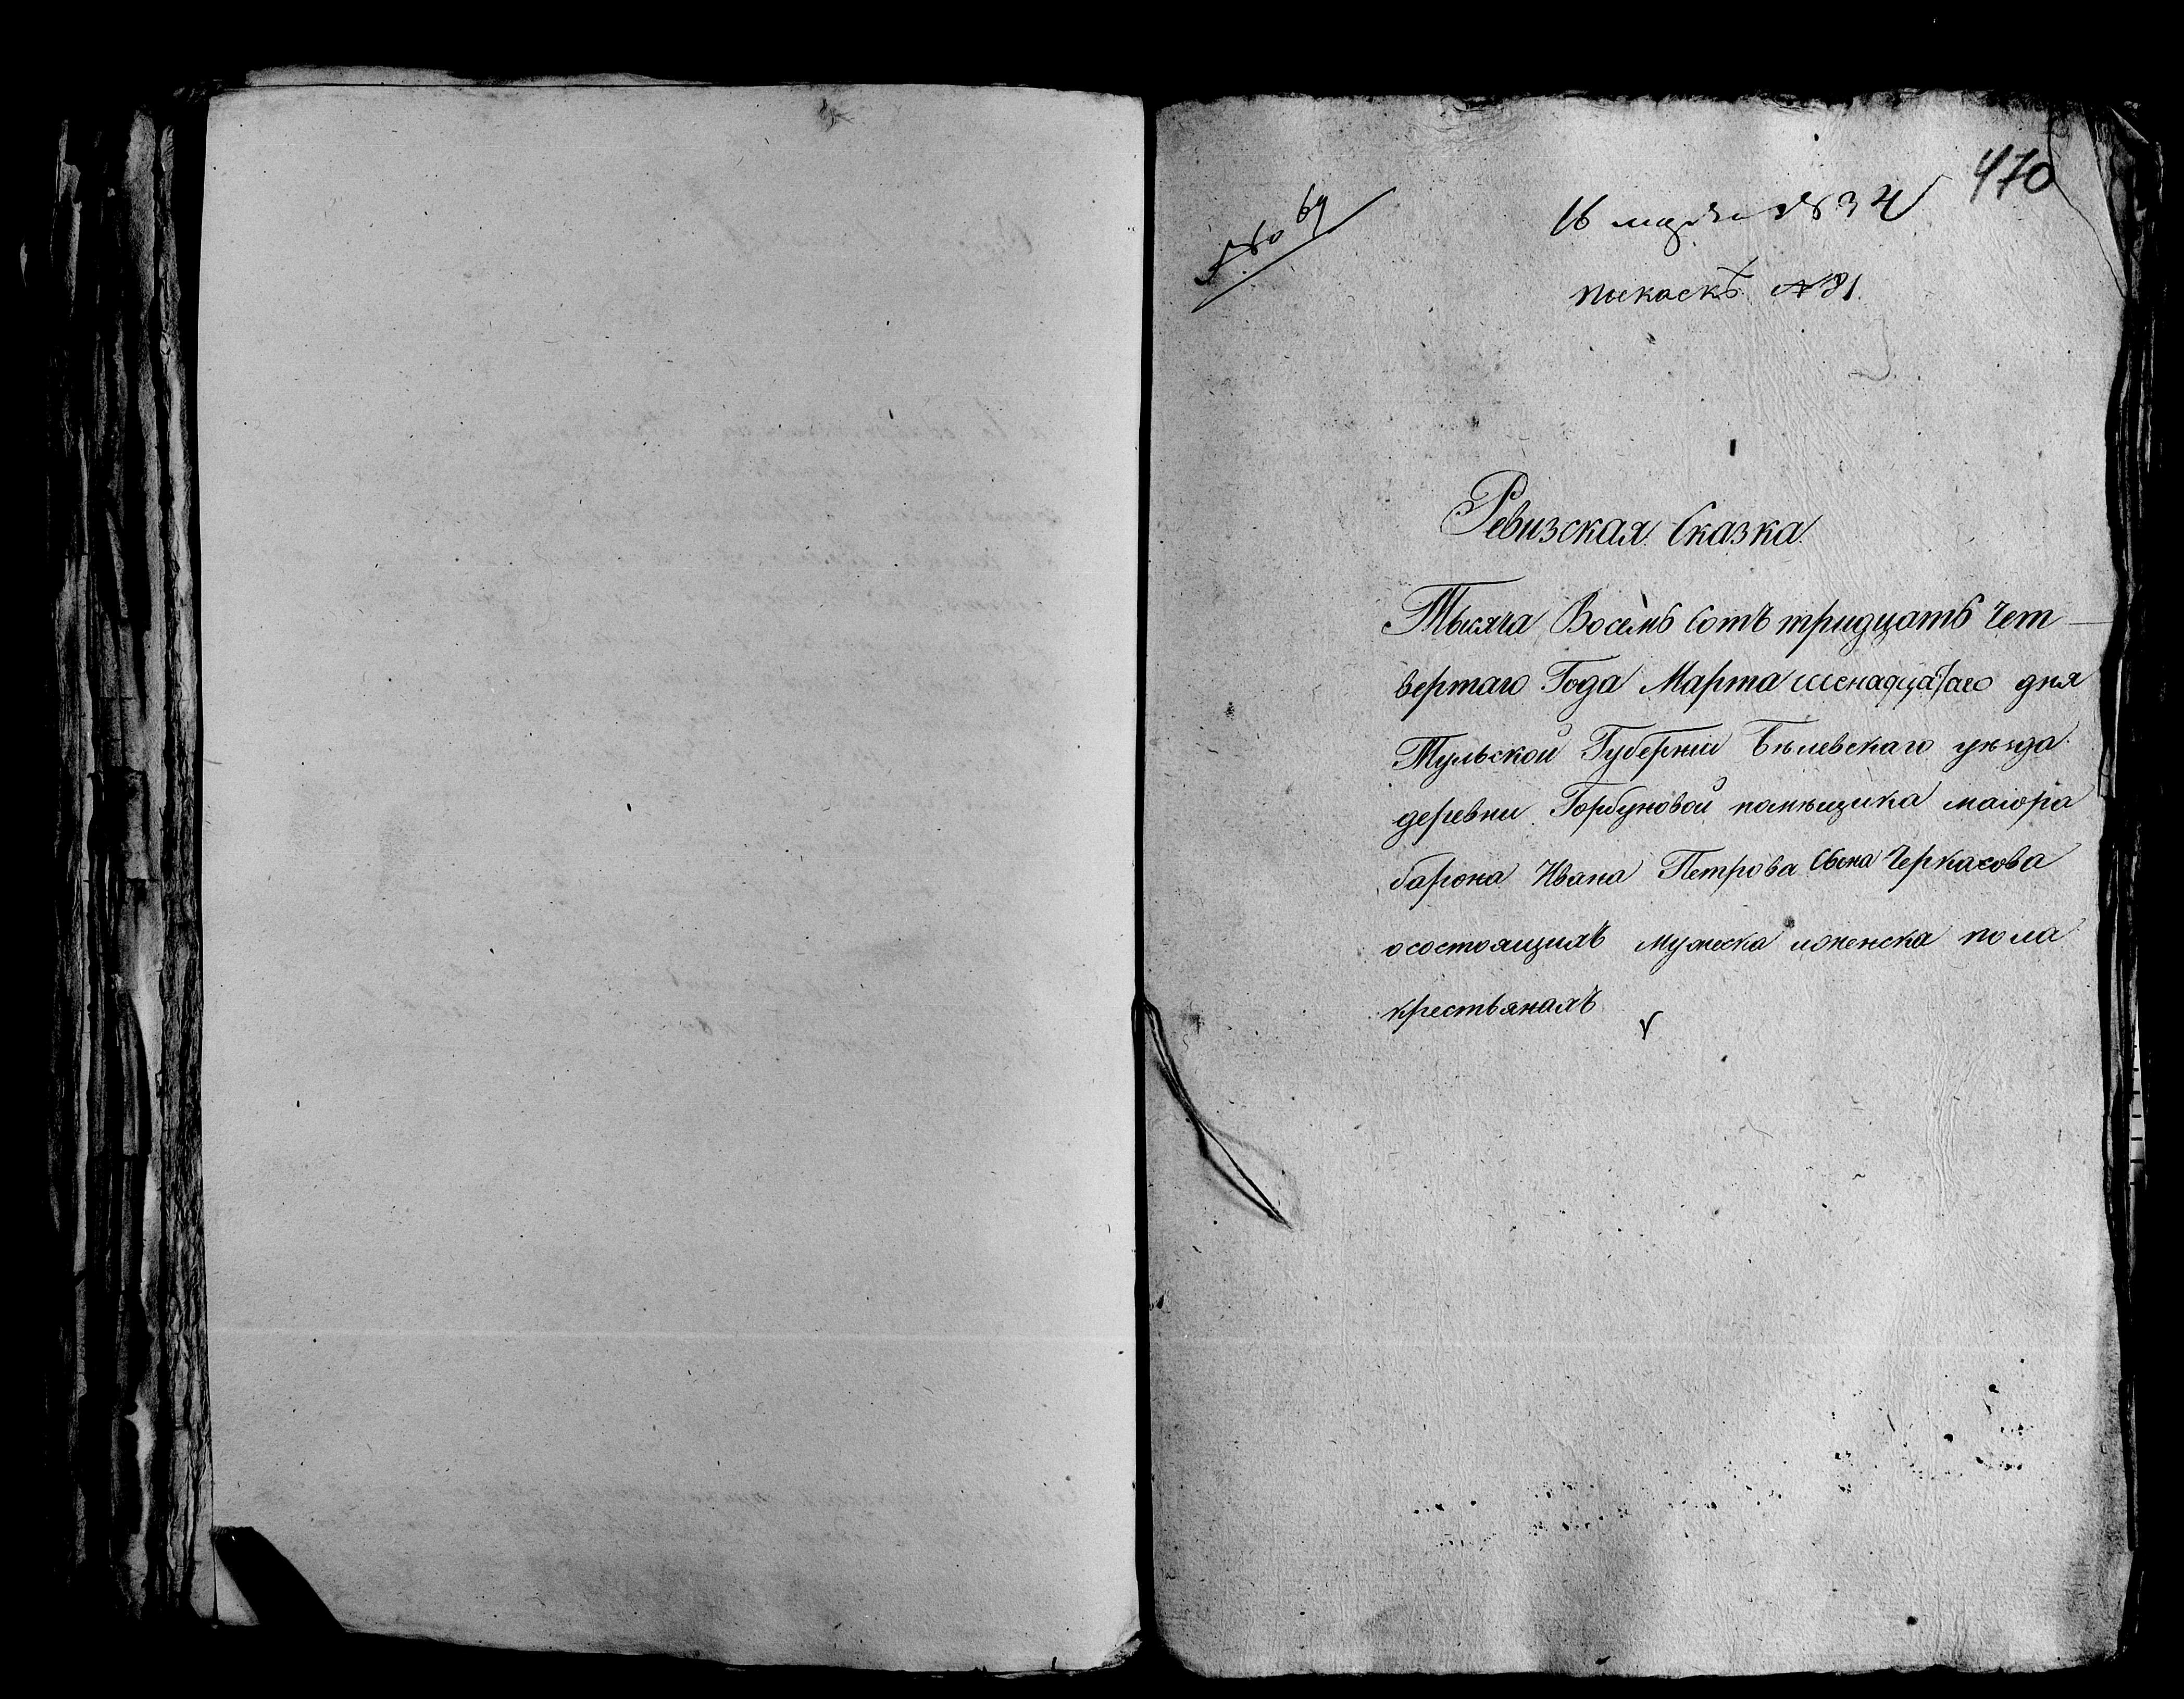 470
16 марта 1834
№ 69
№ 81
Ревизская Сказка
Тысяча Восемь Сотъ тридцать Чет
вертаго Года Марта шеснадцатаго дня
Тульской Губерніи Бѣлевскаго уѣзда
деревни Горбуновой помѣщика маіора
барона Ивана Петрова Сына Черкасова
осостоящихъ мужеска иженска пола
крестьянахъ